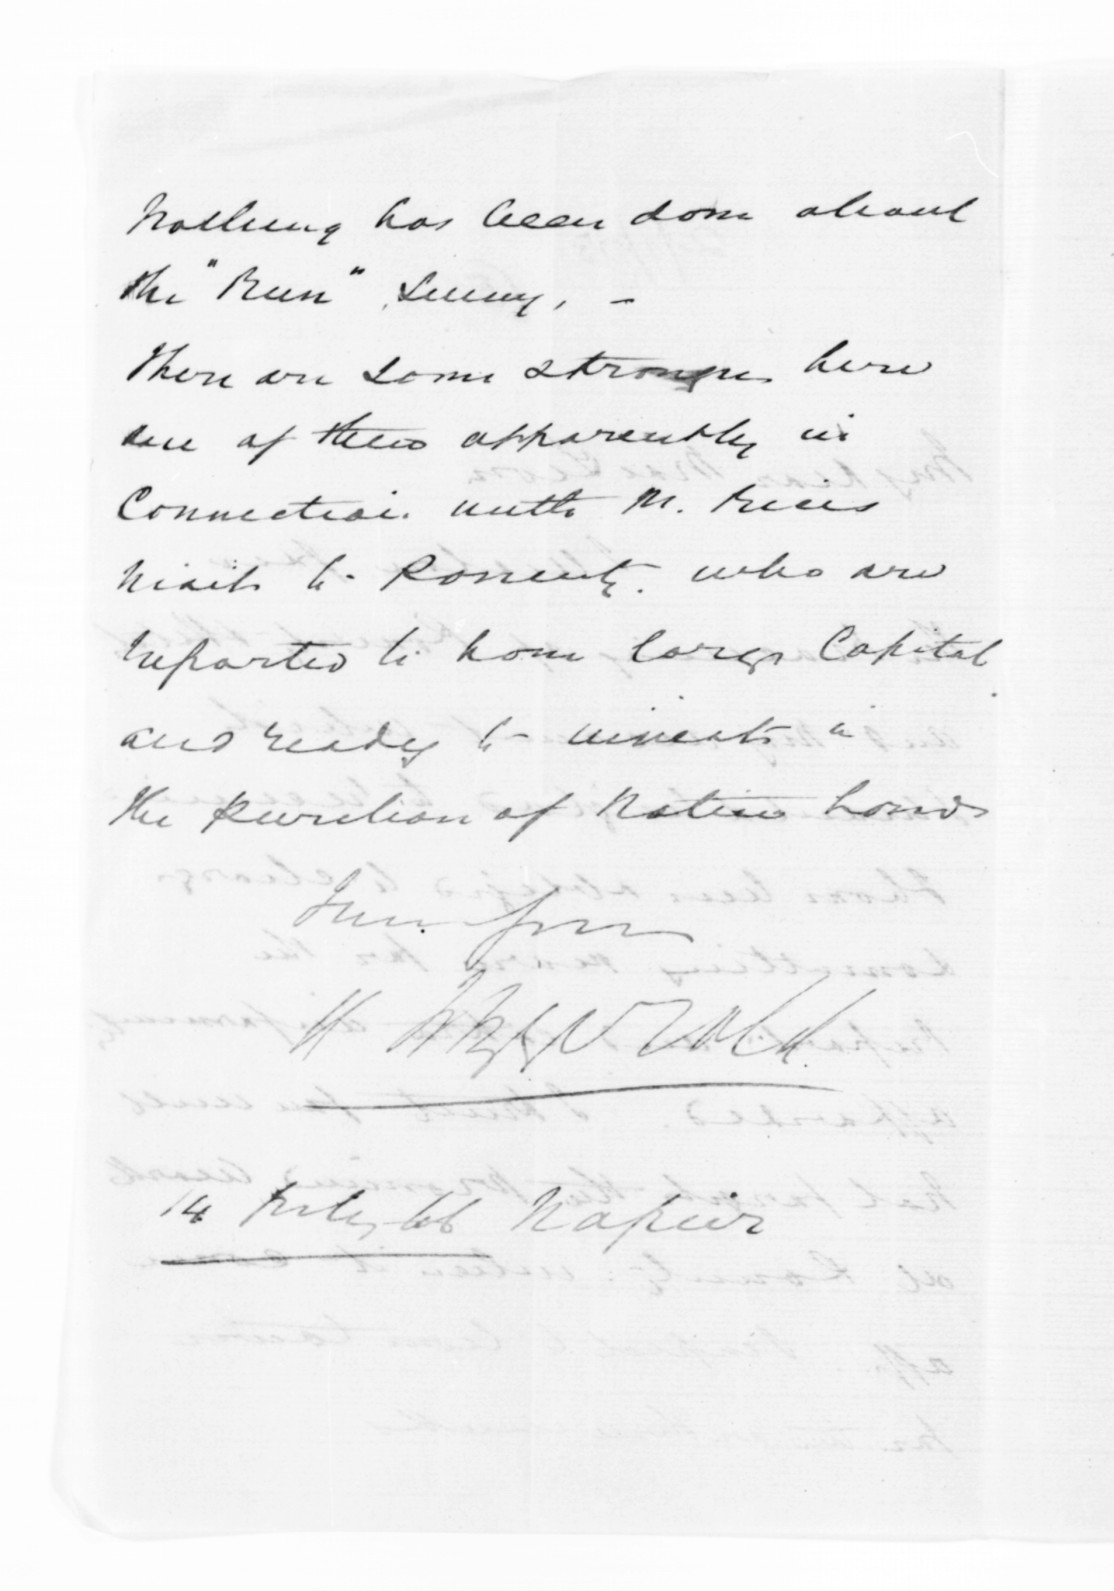 Nothing has been done about
the "Run" Survey, —
There are some strangers here
one of them apparently in
Connection with Mr.
visit to who are
reported to have large Capital
and ready to invest in
the purchase of Native Lands
Truly yours
14 July 66 Napier